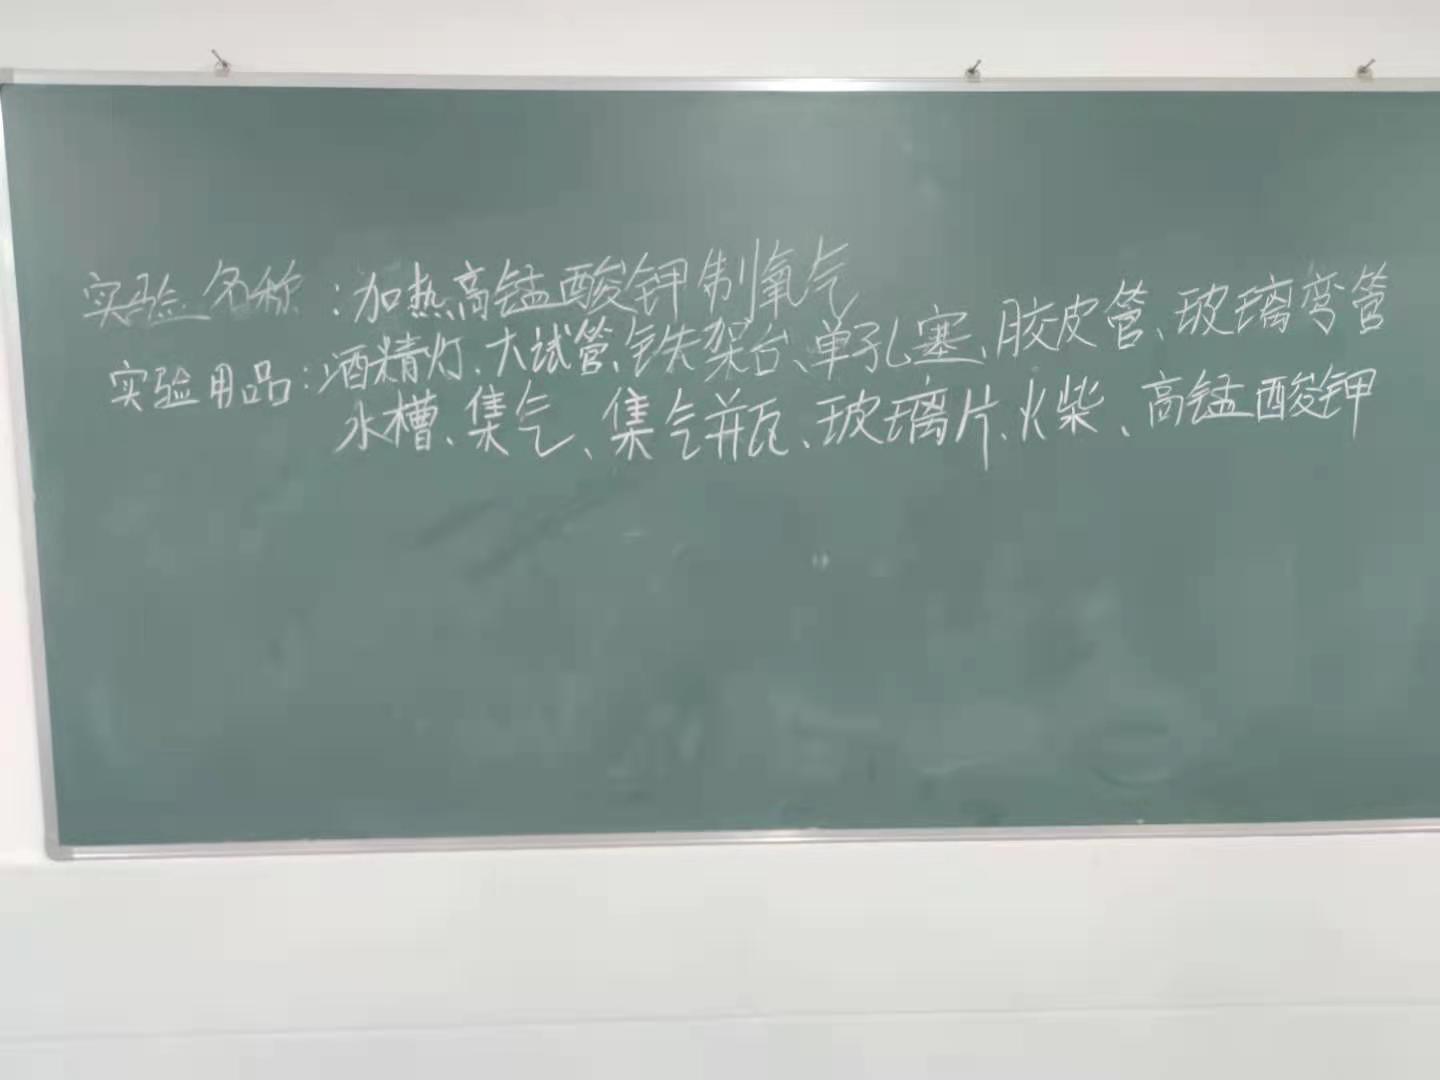 实验名称:加热高锰酸钾制氧气
实验用品:酒精灯、大试管、铁架台、单孔塞、胶皮管、玻璃弯管
水槽、集气、集气瓶、玻璃片、火柴、高锰酸钾